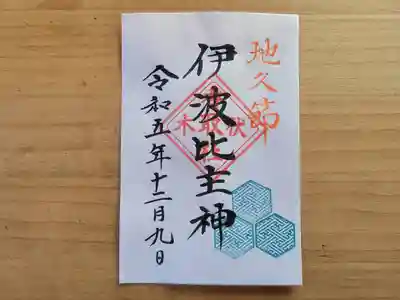 地久節
伊波比主神
伏木
取
令和五年十二月九日